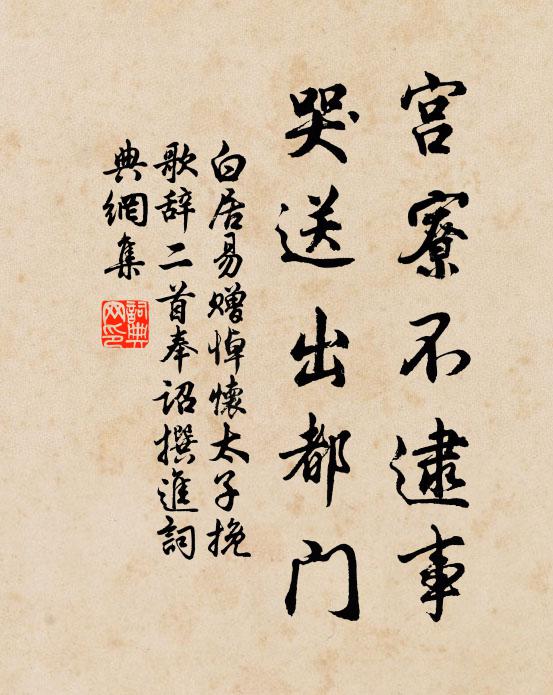 宫寮不逮事
哭送出都门
白居易赠悼怀太子挽
歌辞二首奉诏撰進詞
典網集
詞典
网印